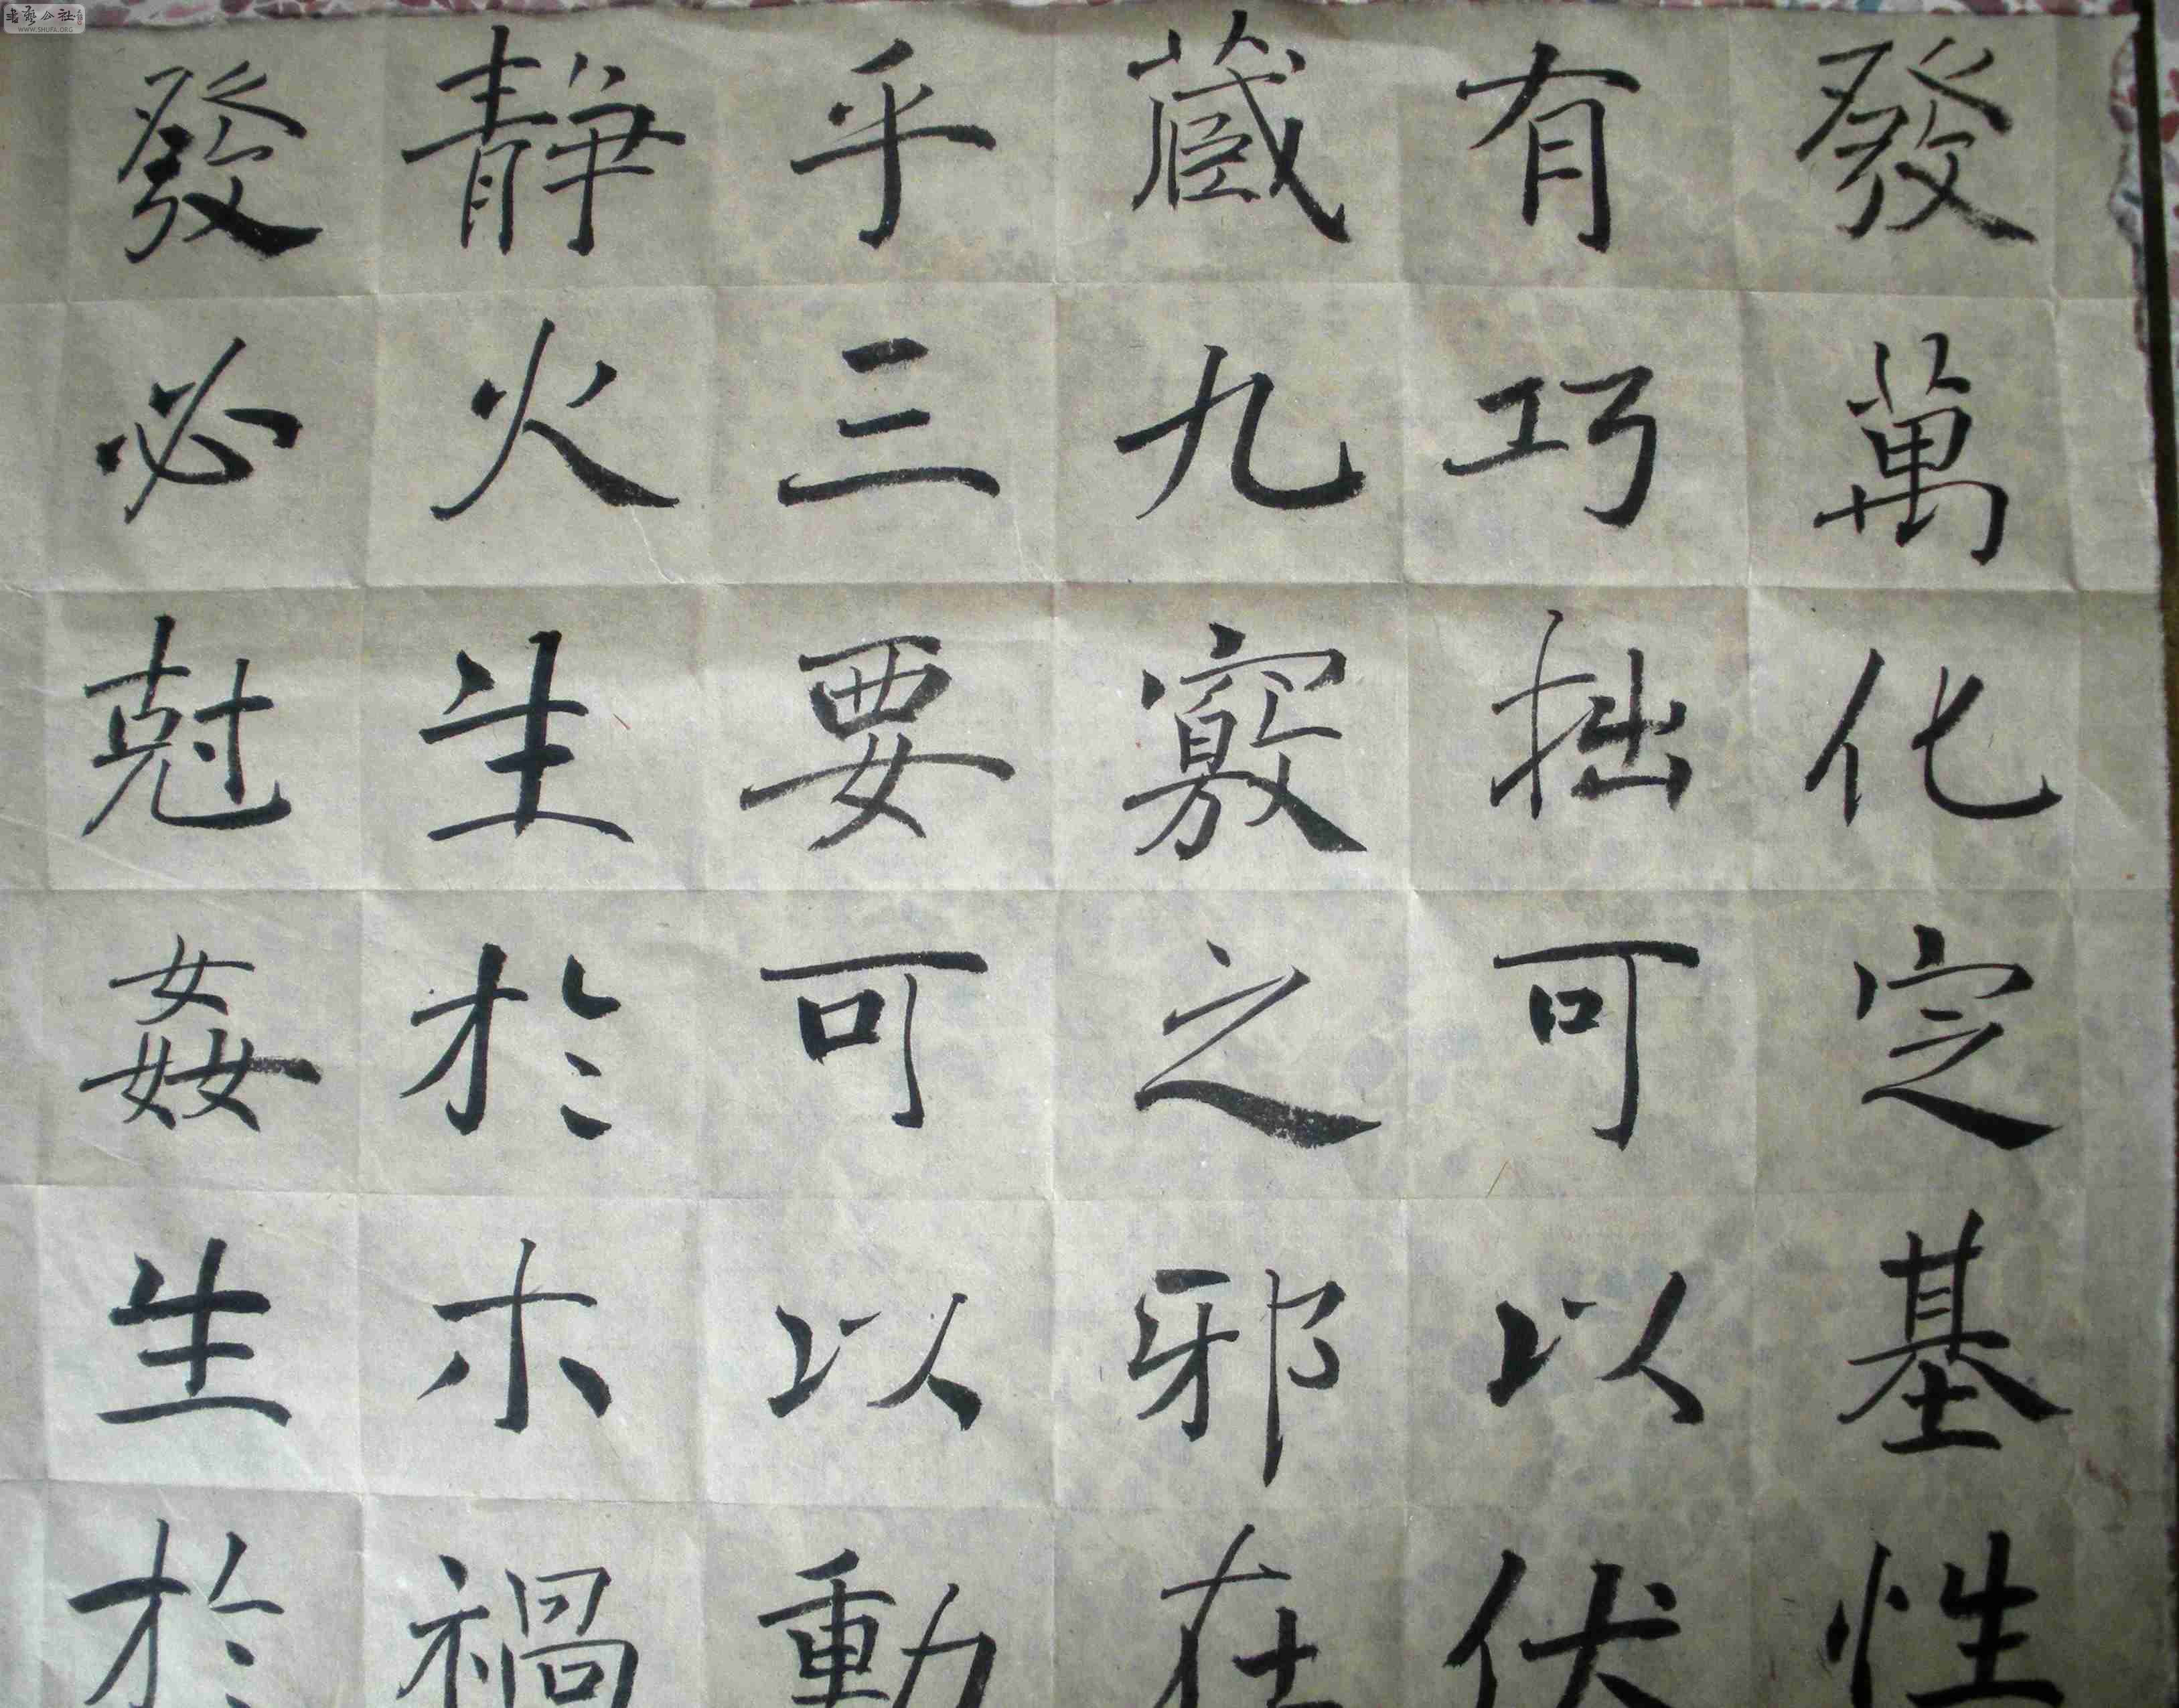 發萬化定基性
有巧拙可以伏
藏九竅之邪在
乎三要可以動
靜火生於木禍
發必剋姦生於
書藝公社
WWW.SHUFA.ORG